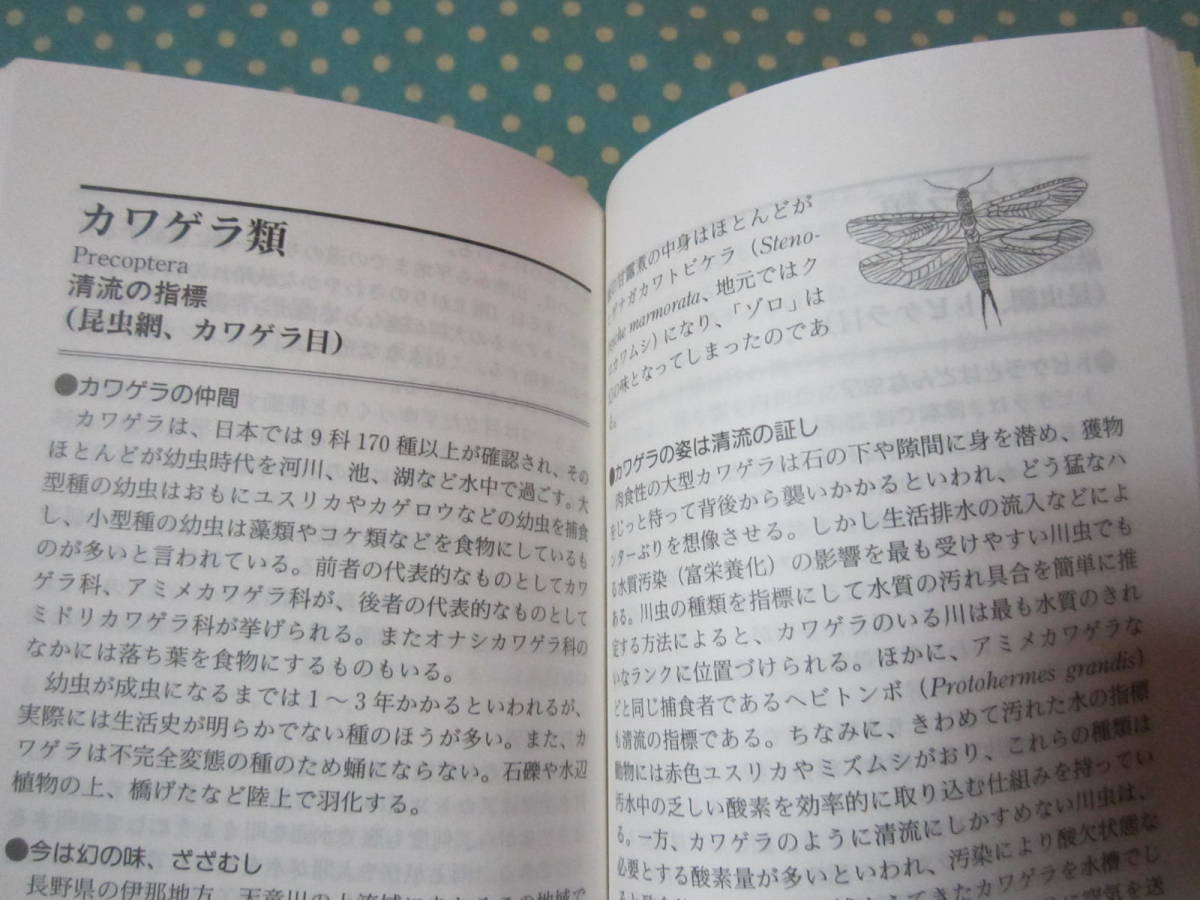 カワゲラ類
Precoptera
清流の指標
(昆虫網、カワゲラ目)
●カワゲラの仲間
カワゲラは、日本では9科170種以上が確認され、その
ほとんどが幼虫時代を河川、池、湖など水中で過ごす。大
型種の幼虫はおもにユスリカやカゲロウなどの幼虫を捕食
し、小型種の幼虫は藻類やコケ類などを食物にしているも
のが多いと言われている。前者の代表的なものとしてカワ
ゲラ科、アミメカワゲラ科が、後者の代表的なものとして
ミドリカワゲラ科が挙げられる。またオナシカワゲラ科の
なかには落ち葉を食物にするものもいる。
幼虫が成虫になるまでは1～3年かかるといわれるが、
実際には生活史が明らかでない種のほうが多い。また、カ
ワゲラは不完全変態の種のため蛹にならない。石礫や水辺
植物の上、橋げたなど陸上で羽化する。
●今は幻の味、ざざむし
長野県の伊那地方、天竜川の上流域に
の甘露煮の中身はほとんどが
ゲナガカワトビケラ（Steno-
marmorata、地元ではク
カワムシ）になり、「ゾロ」は
の味となってしまったのであ
る。
●カワゲラの姿は清流の証し
肉食性の大型カワゲラは石の下や隙間に身を潜め、獲物
をじっと待って背後から襲いかかるといわれ、どう猛なハ
ンターぶりを想像させる。しかし生活排水の流入などによ
る水質汚染（富栄養化）の影響を最も受けやすい川虫でも
ある。川虫の種類を指標にして水質の汚れ具合を簡単に推
定する方法によると、カワゲラのいる川は最も水質のきれ
いなランクに位置づけられる。ほかに、アミメカワゲラな
どと同じ捕食者であるヘビトンボ（Protohermes grandis）
も清流の指標である。ちなみに、きわめて汚れた水の指標
動物には赤色ユスリカやミズムシがおり、これらの種類は
汚水中の乏しい酸素を効率的に取り込む仕組みを持ってい
る。一方、カワゲラのように清流にしかすめない川虫は、
必要とする酸素量が多いといわれ、汚染により酸欠状態な
てきたカワゲラを水槽でし
空気を送